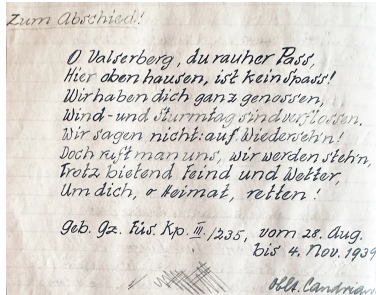 Zum Abschied!
O Valserberg, du rauher Pass,
Hier oben hausen, ist kein Spass!
Wir haben dich ganz genossen,
Wind- und Sturmtag sind verflossen.
Wir sagen nicht: auf Wiederseh'n!
Doch ruft man uns, wir werden steh'n,
Trotz bietend Feind und Wetter,
Um dich, o Heimat, retten!
Geb. Gz. Füs. Kp. III./235, vom 28. Aug.
bis 4. Nov. 1939
Oblt. Candrian